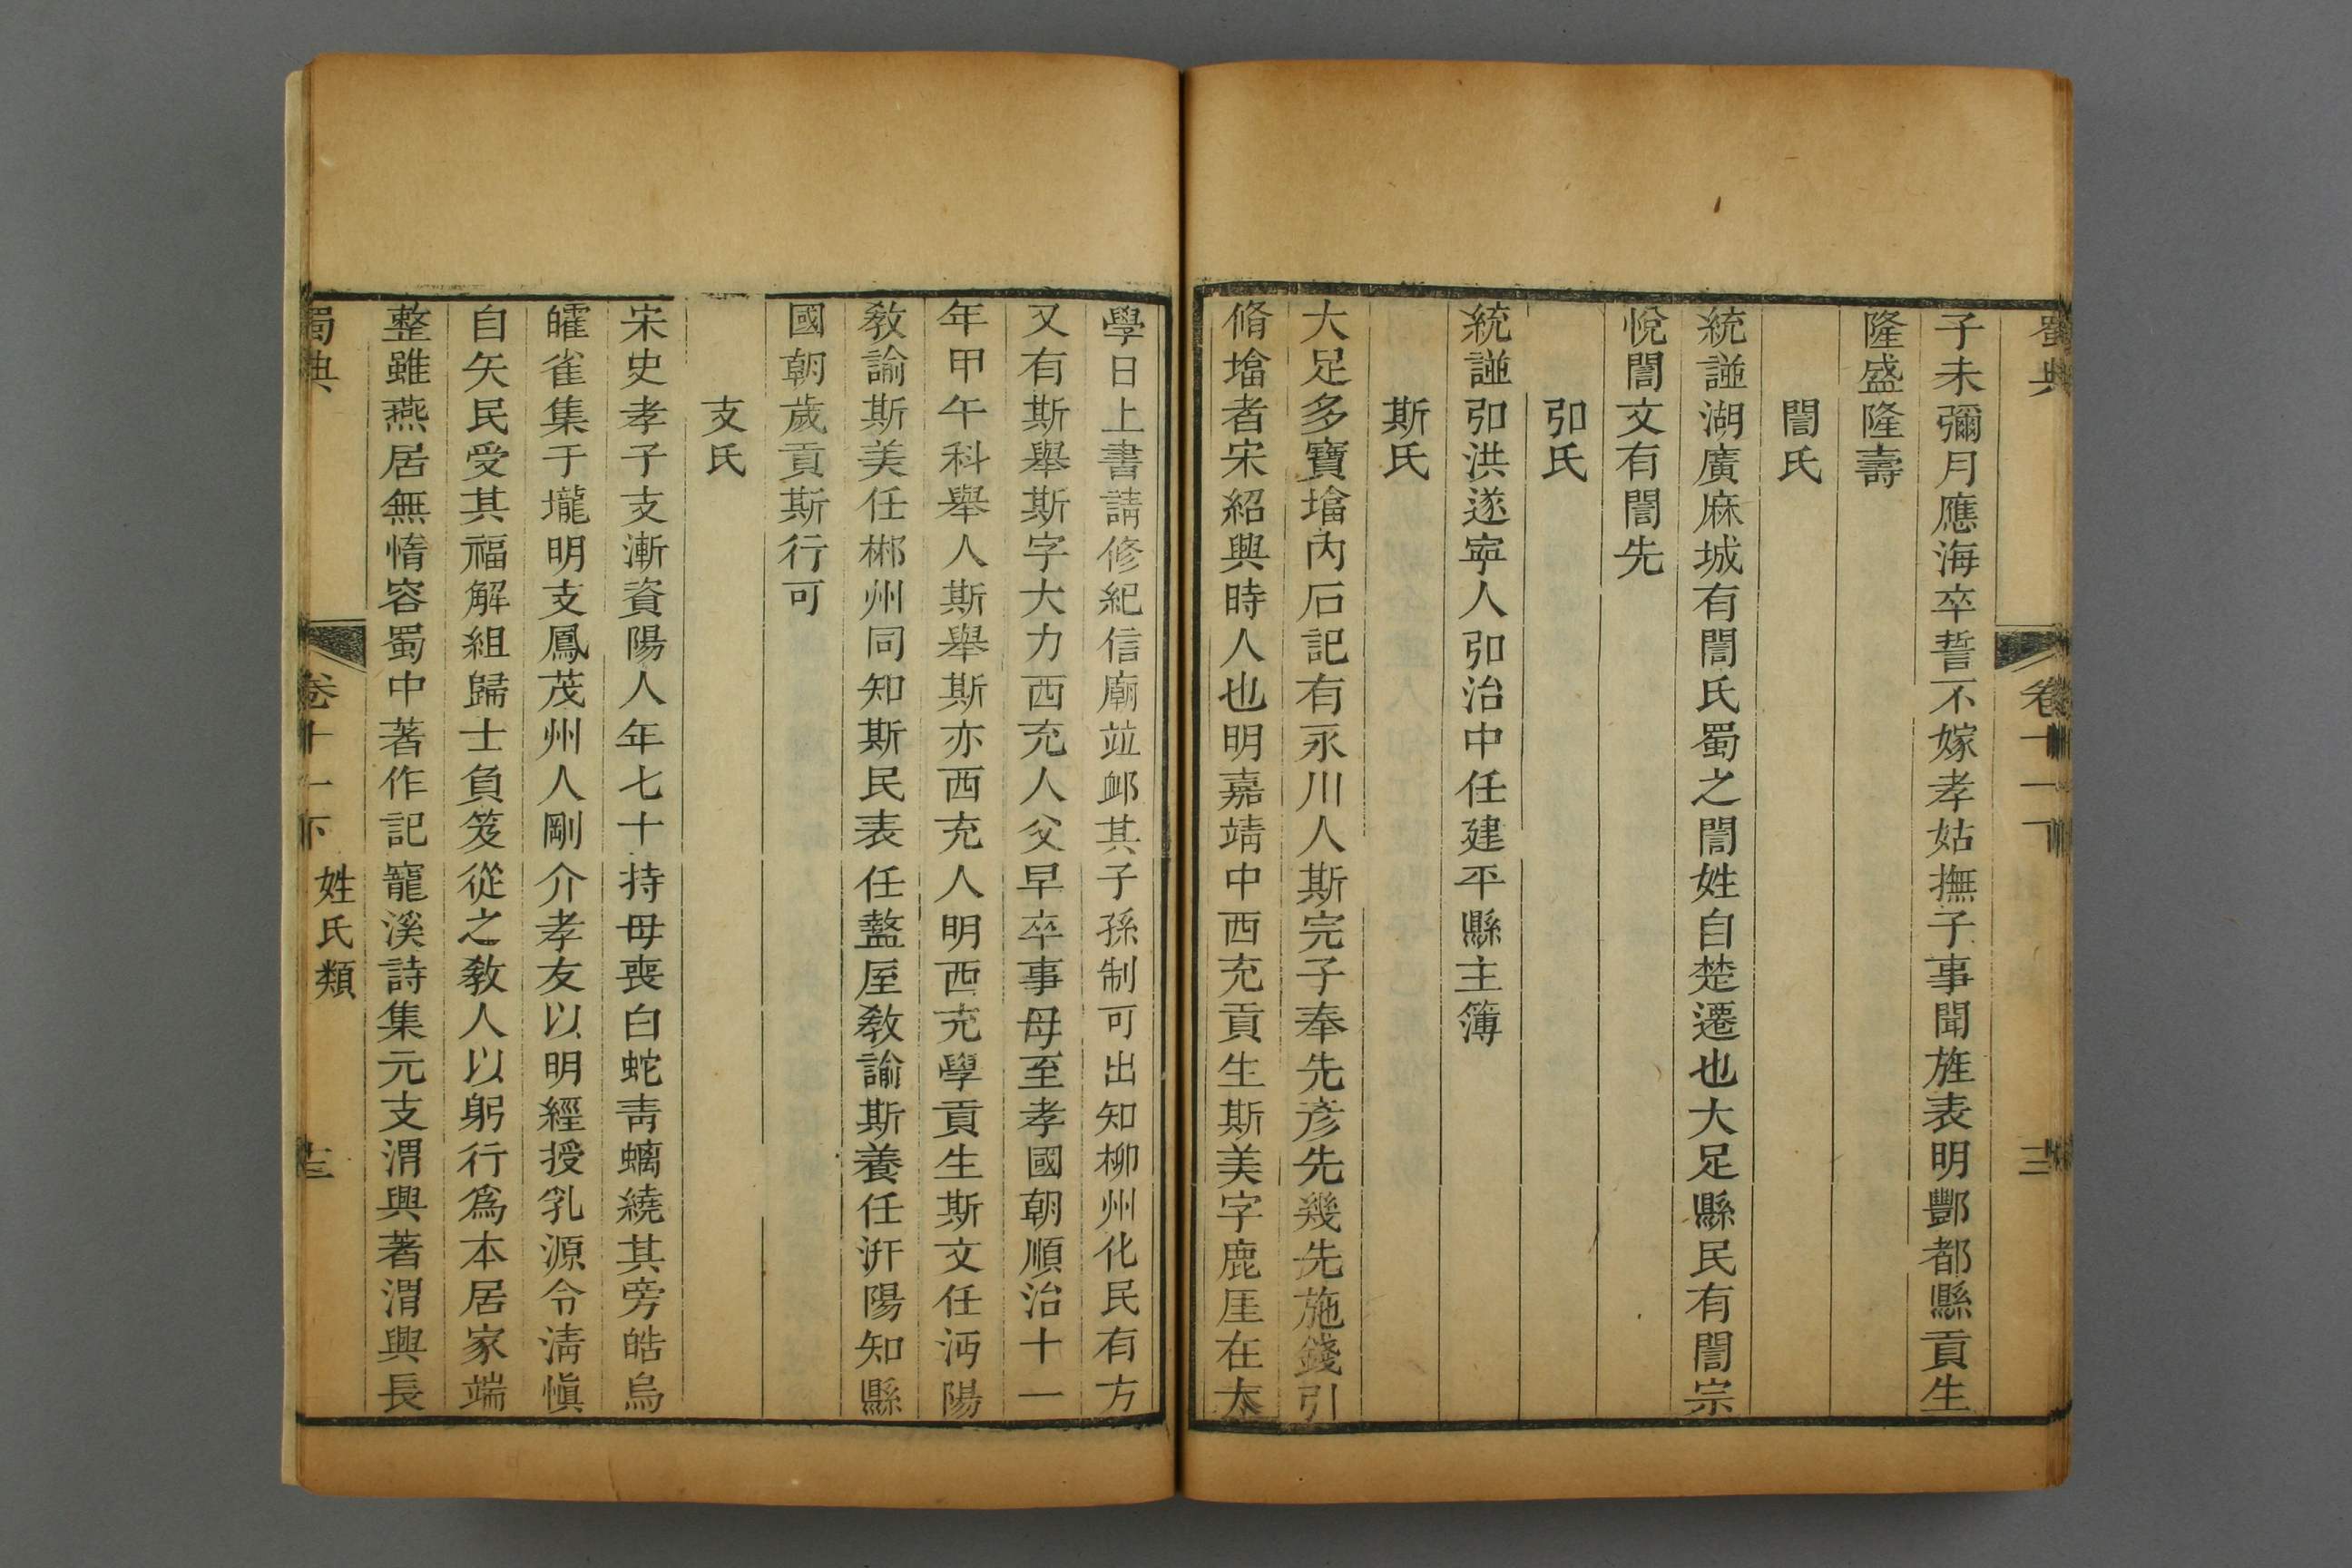 蜀典 卷十一下 三
子未彌月應海卒誓不嫁孝姑撫子事聞旌表明酆都縣貢生
隆盛隆壽
誾氏
統譜湖廣麻城有誾氏蜀之誾姓自楚遷也大足縣民有誾宗
悅誾文有誾先
弞氏
統譜弞洪遂寧人弞治中任建平縣主簿
斯氏
大足多寶墖內石記有永川人斯完子奉先彥先幾先施錢引
脩墖者宋紹興時人也明嘉靖中西充貢生斯美字鹿厓在太
學日上書請修紀信廟竝卹其子孫制可出知柳州化民有方
又有斯舉斯字大力西充人父早卒事母至孝國朝順治十一
年甲午科舉人斯舉斯亦西充人明西充學貢生斯文任沔陽
敎諭斯美任郴州同知斯民表任盩厔敎諭斯養任汧陽知縣
國朝歲貢斯行可
支氏
宋史孝子支漸資陽人年七十持母喪白蛇靑螭繞其旁皓烏
皬雀集于壠明支鳳茂州人剛介孝友以明經授乳源令淸愼
自矢民受其福解組歸士負笈從之敎人以躬行爲本居家端
整雖燕居無惰容蜀中著作記寵溪詩集元支渭興著渭興長
蜀典 卷十一下 姓氏類